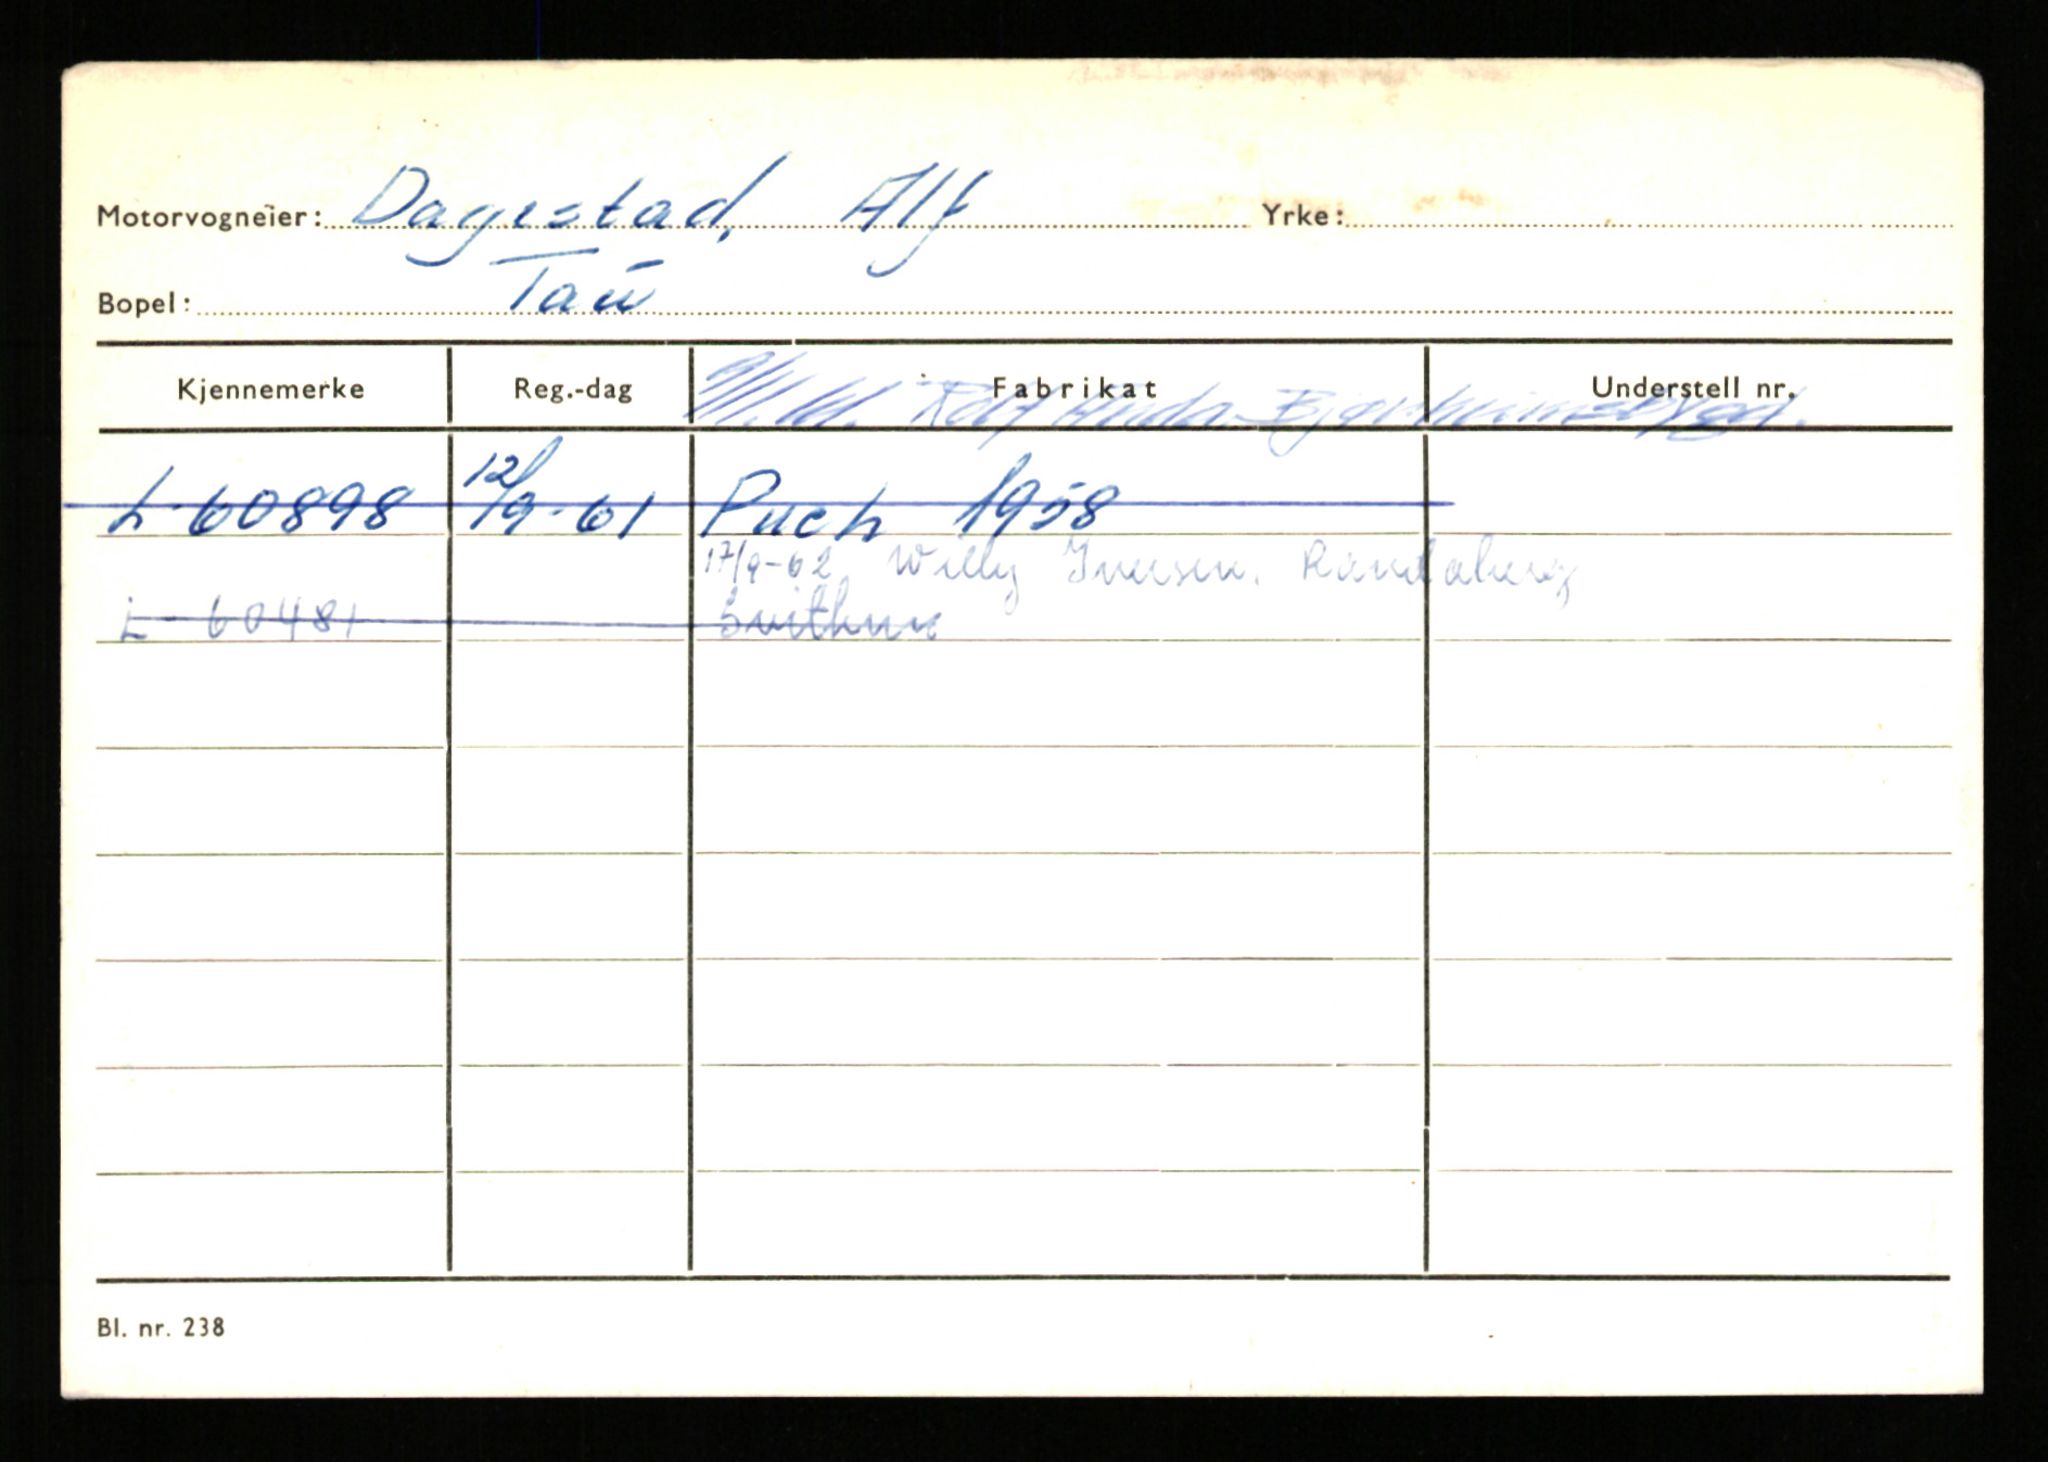 Motorvogneier: Dagestad, Alf Yrke:
Bopel: Tau
Kjennemerke Reg.-dag Fabrikat Understell nr.
Rolf Bjørheimsbygd.
L-60898 12/9-61 Puch 1958
17/9-62 Willy Iversen, Randaberg
L-60481 Svithun
Bl. nr. 238